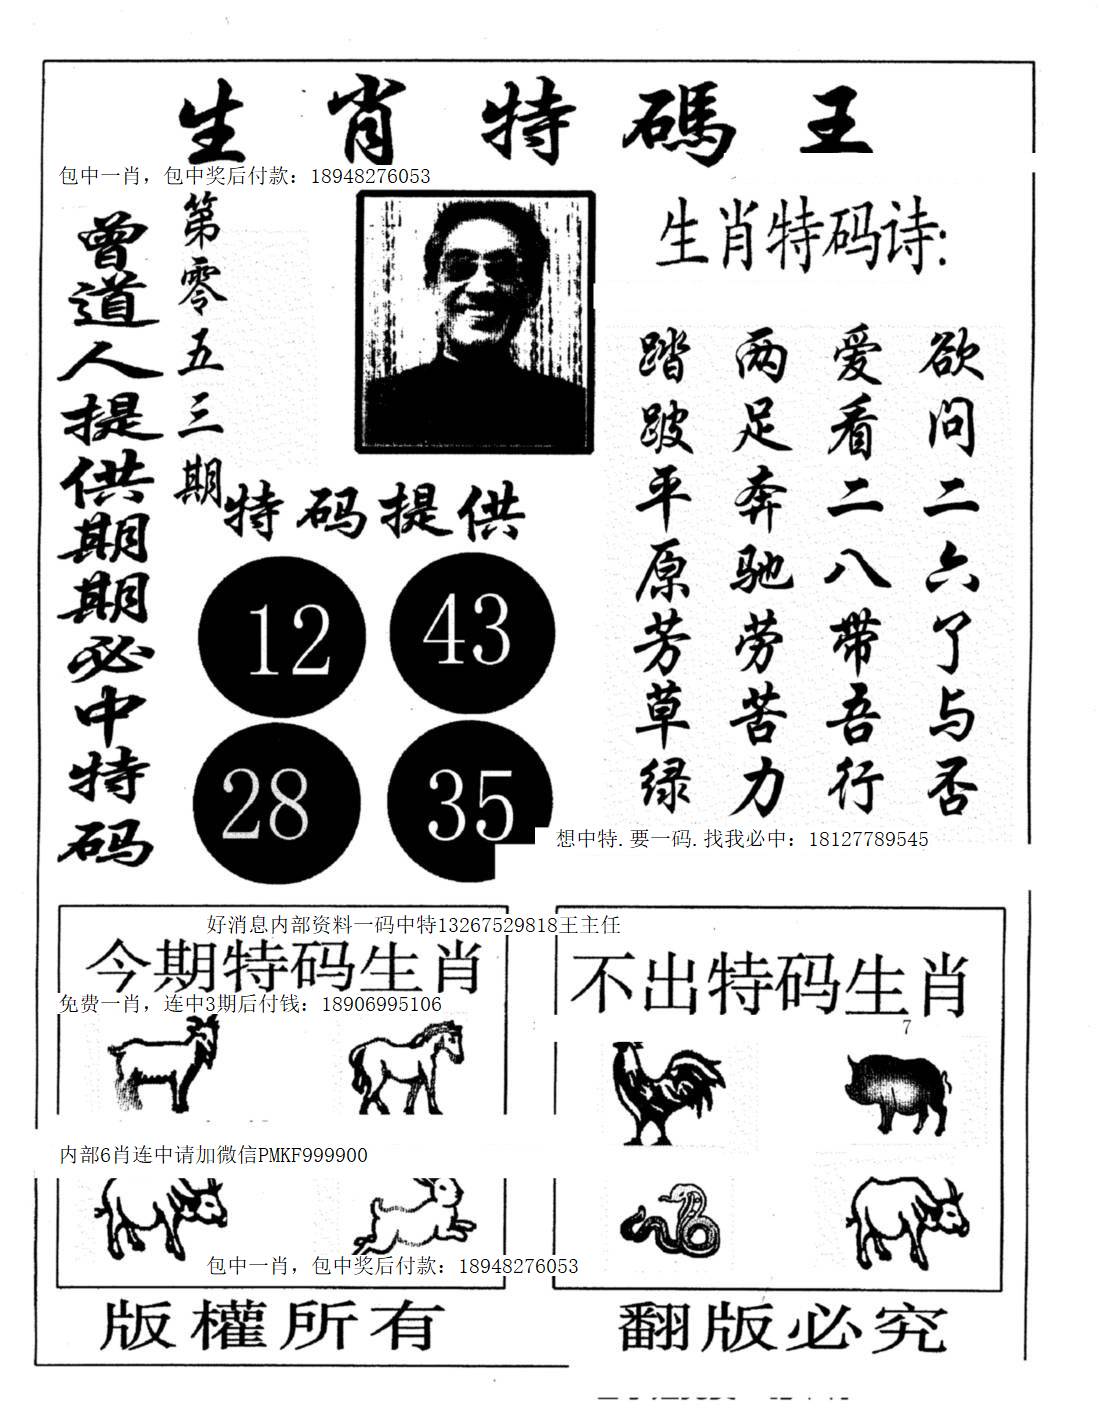 生肖特碼王
包中一肖，包中奖后付款：18948276053
曾道人提供期期必中特码
第零五三期
特码提供
12 43
28 35
生肖特码诗:
欲问二六了与否
爱看二八带吾行
两足奔驰劳苦力
踏跛平原芳草绿
想中特.要一码.找我必中：18127789545
好消息内部资料一码中特13267529818王主任
今期特码生肖
免费一肖，连中3期后付钱：18906995106
内部6肖连中请加微信PMKF999900
包中一肖，包中奖后付款：18948276053
不出特码生肖
7
版權所有
翻版必究